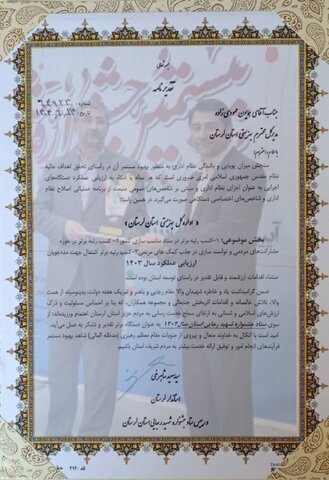 بسمه تعالی
تقدیرنامه
شماره:
تاریخ:
جناب آقای
مدیرکل محترم بهزیستی استان لرستان
با سلام و احترام؛
سنجش میزان پویایی و بالندگی نظام اداری، به منظور بهبود مستمر آن در راستای تحقق اهداف عالیه
نظام مقدس جمهوری اسلامی ایران امری ضروری است که هر ساله با اتکاء به ارزیابی عملکرد دستگاه‌های
اجرایی به عنوان اجزای نظام اداری و مبتنی بر شاخص‌های عمومی منبعث از برنامه عملیاتی اصلاح نظام
اداری و شاخص‌های اختصاصی دستگاهی صورت می‌گیرد. در همین راستا؛
« اداره کل بهزیستی استان لرستان »
بخش موضوعی: ۱-کسب رتبه برتر در ستاد مناسب سازی کشور ۲-کسب رتبه برتر در حوزه
مشارکت‌های مردمی و توانمند سازی در جذب کمک های مردمی ۳-کسب رتبه برتر اشتغال جهت مددجویان
ارزیابی عملکرد سال ۱۴۰۳
منشاء اقدامات ارزشمند و قابل تقدیر در راستای توسعه استان بوده است.
ضمن گرامیداشت یاد و خاطره شهیدان والا مقام رجایی و باهنر و تبریک هفته دولت، بدینوسیله از همت
والا، تلاش خالصانه و اقدامات اثربخش جنابعالی و مجموعه همکاران، که بنا بر احساس مسئولیت و درک
ارزش‌های اسلامی و انسانی به ارتقای سطح خدمت رسانی به مردم عزیز استان لرستان اهتمام ورزیده‌اند؛
از سوی ستاد جشنواره شهید رجایی استان سال ۱۴۰۴ به عنوان دستگاه برتر تقدیر و تشکر به عمل می‌آید.
امید است با اتکال به خداوند متعال و پیروی از منویات مقام معظم رهبری (مدظله العالی) شاهد بهبود مستمر
فرآیندهای انجام امور و توفیق ارائه خدمت بیشتر به مردم شریف استان باشیم.
سید سعید شاهرخی
استاندار لرستان
و رییس ستاد جشنواره شهید رجایی استان لرستان